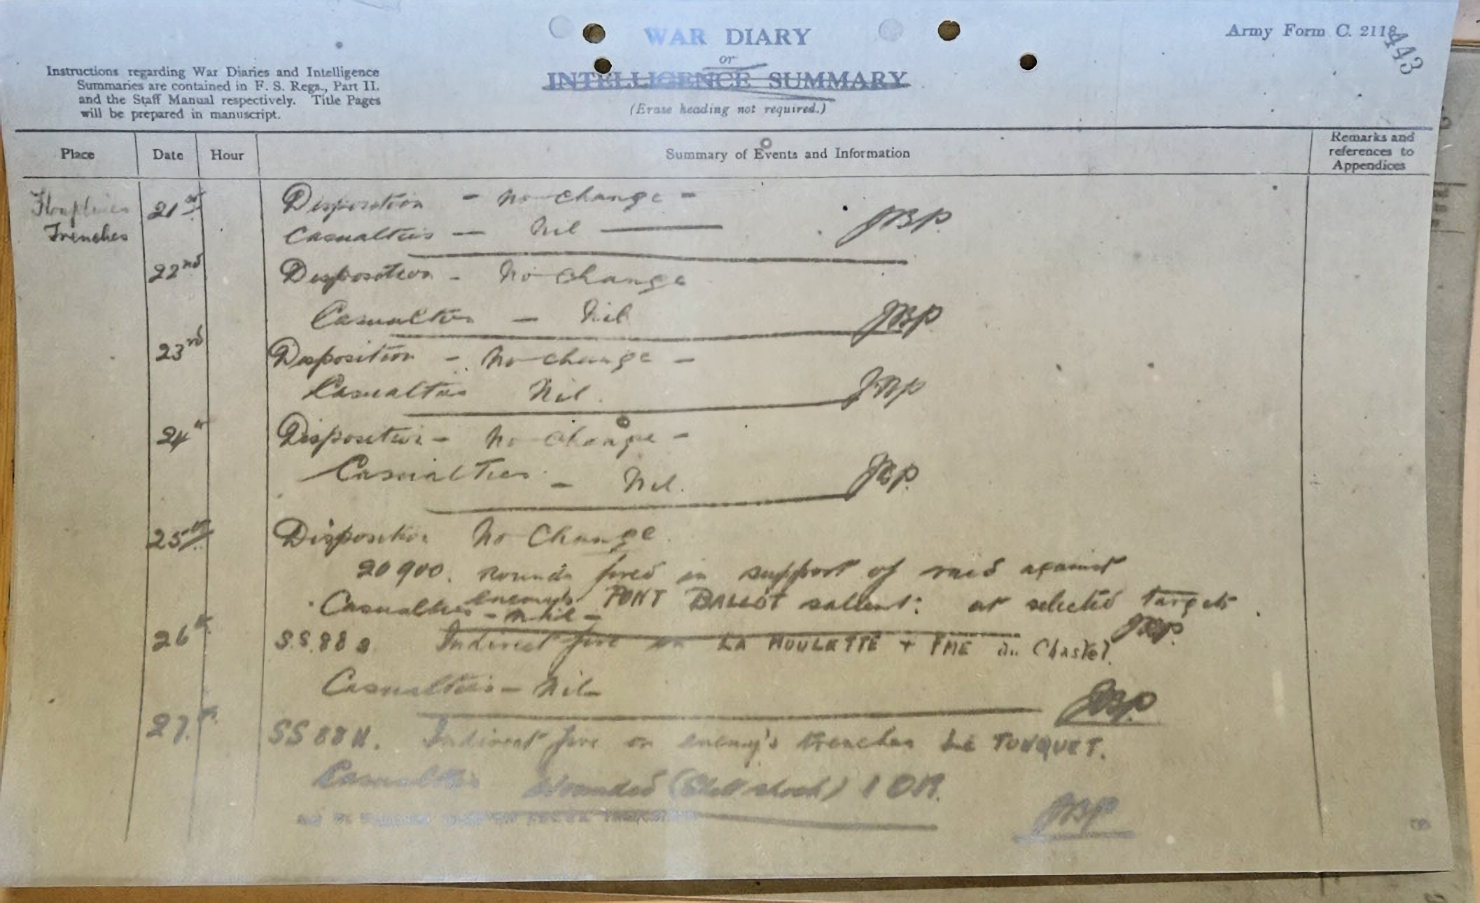 WAR DIARY
or
INTELLIGENCE SUMMARY
(Erase heading not required.)
Army Form C. 2118
443
Instructions regarding War Diaries and Intelligence
Summaries are contained in F. S. Regs., Part II.
and the Staff Manual respectively. Title Pages
will be prepared in manuscript.
Place Date Hour Summary of Events and Information Remarks and references to Appendices
Houplines Trenches
21st Disposition - No change -
Casualties - Nil JBP
22nd Disposition - No change
Casualties - Nil JBP
23rd Disposition - No change -
Casualties Nil. JBP
24th Disposition - No change -
Casualties - Nil. JBP
25th Disposition No Change
20900. Rounds fired in support of raid against
enemy's PONT BALLOT salient: at selected targets.
Casualties - Nil - JBP
26th S.S. 88 Indirect fire on LA HOULETTE + FME du Chastel
Casualties - Nil - JBP
27th SS 88 Indirect fire on enemy's trenches Le TOUQUET.
Casualties Wounded (Shell shock) 1 OR. JBP